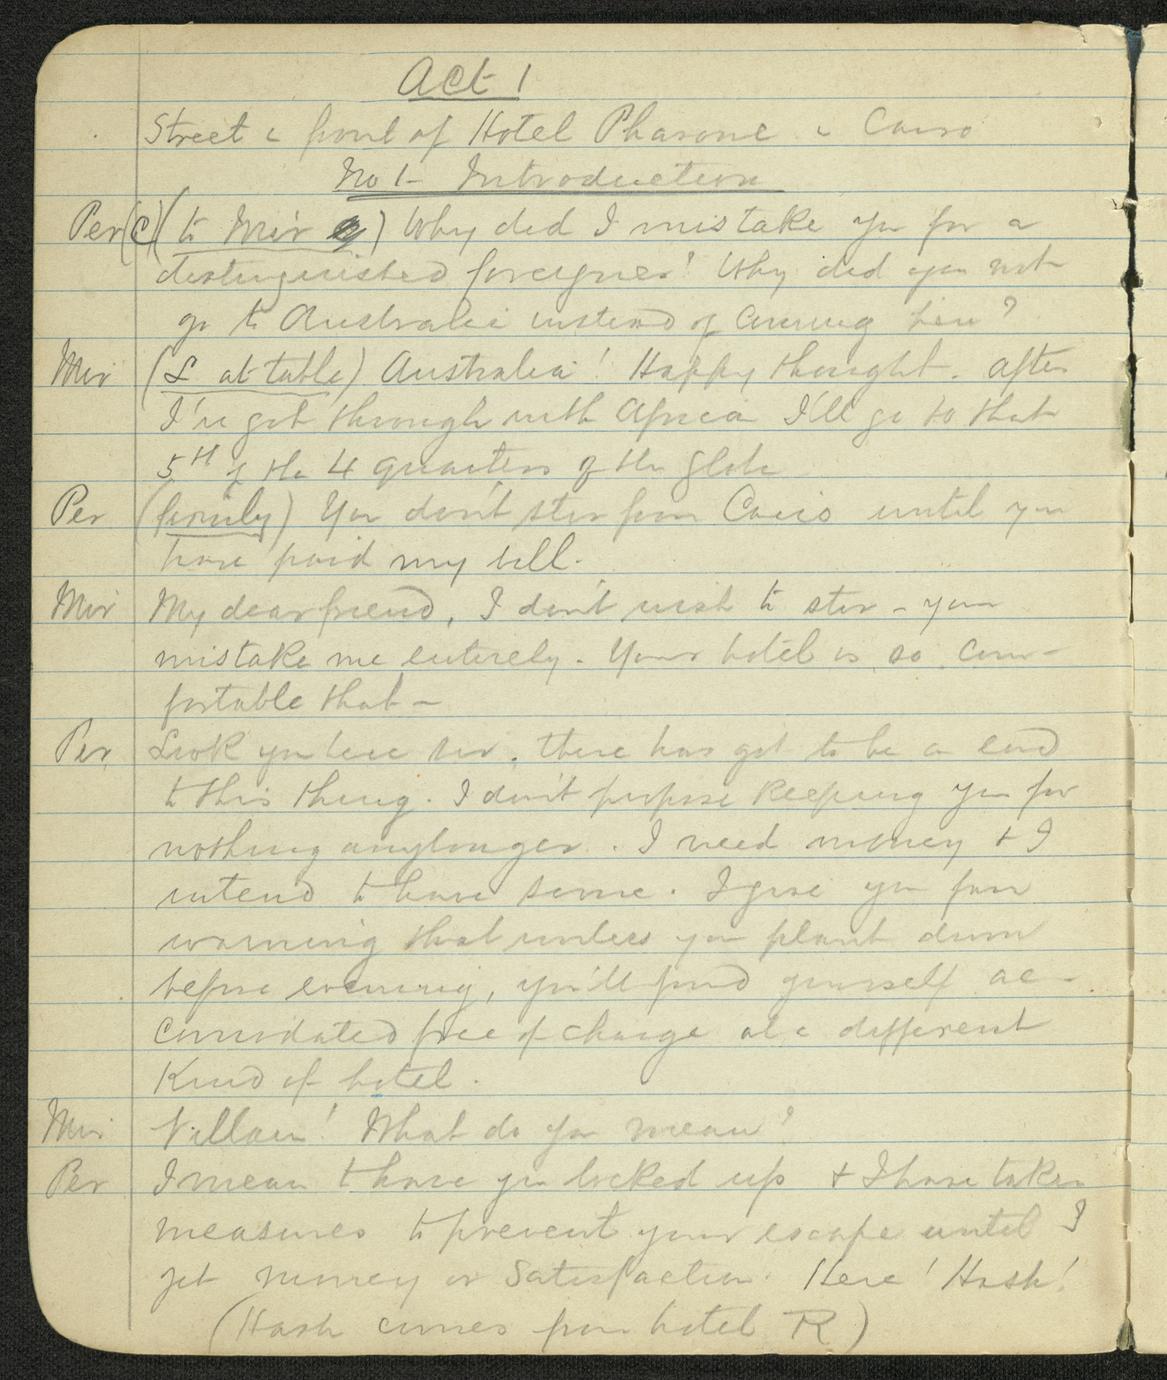 Act 1
Street i front of Hotel Pharaone i Cairo
No 1 - Introduction
Per (C) (to Mir) Why did I mistake you for a
distinguished foreigner? Why did you not
go to Australia instead of coming here?
Mir (L at table) Australia! Happy thought. After
I've got through with Africa I'll go to that
5th of the 4 quarters of the globe
Per (firmly) You don't stir from Cairo until you
have paid my bill.
Mir My dear friend, I don't wish to stir - you
mistake me entirely. Your hotel is so com-
fortable that -
Per Look you here sir, there has got to be a end
to this thing. I don't propose keeping you for
nothing anylonger. I need money + I
intend to have some. I give you fair
warning that unless you plank down
before evening, you'll find yourself ac-
comodated free of charge at a different
Kind of hotel.
Mir Villain! What do you mean?
Per I mean to have you locked up + I have taken
measures to prevent your escape until I
get money or Satisfaction. Here! Hash!
(Hash comes from hotel R)